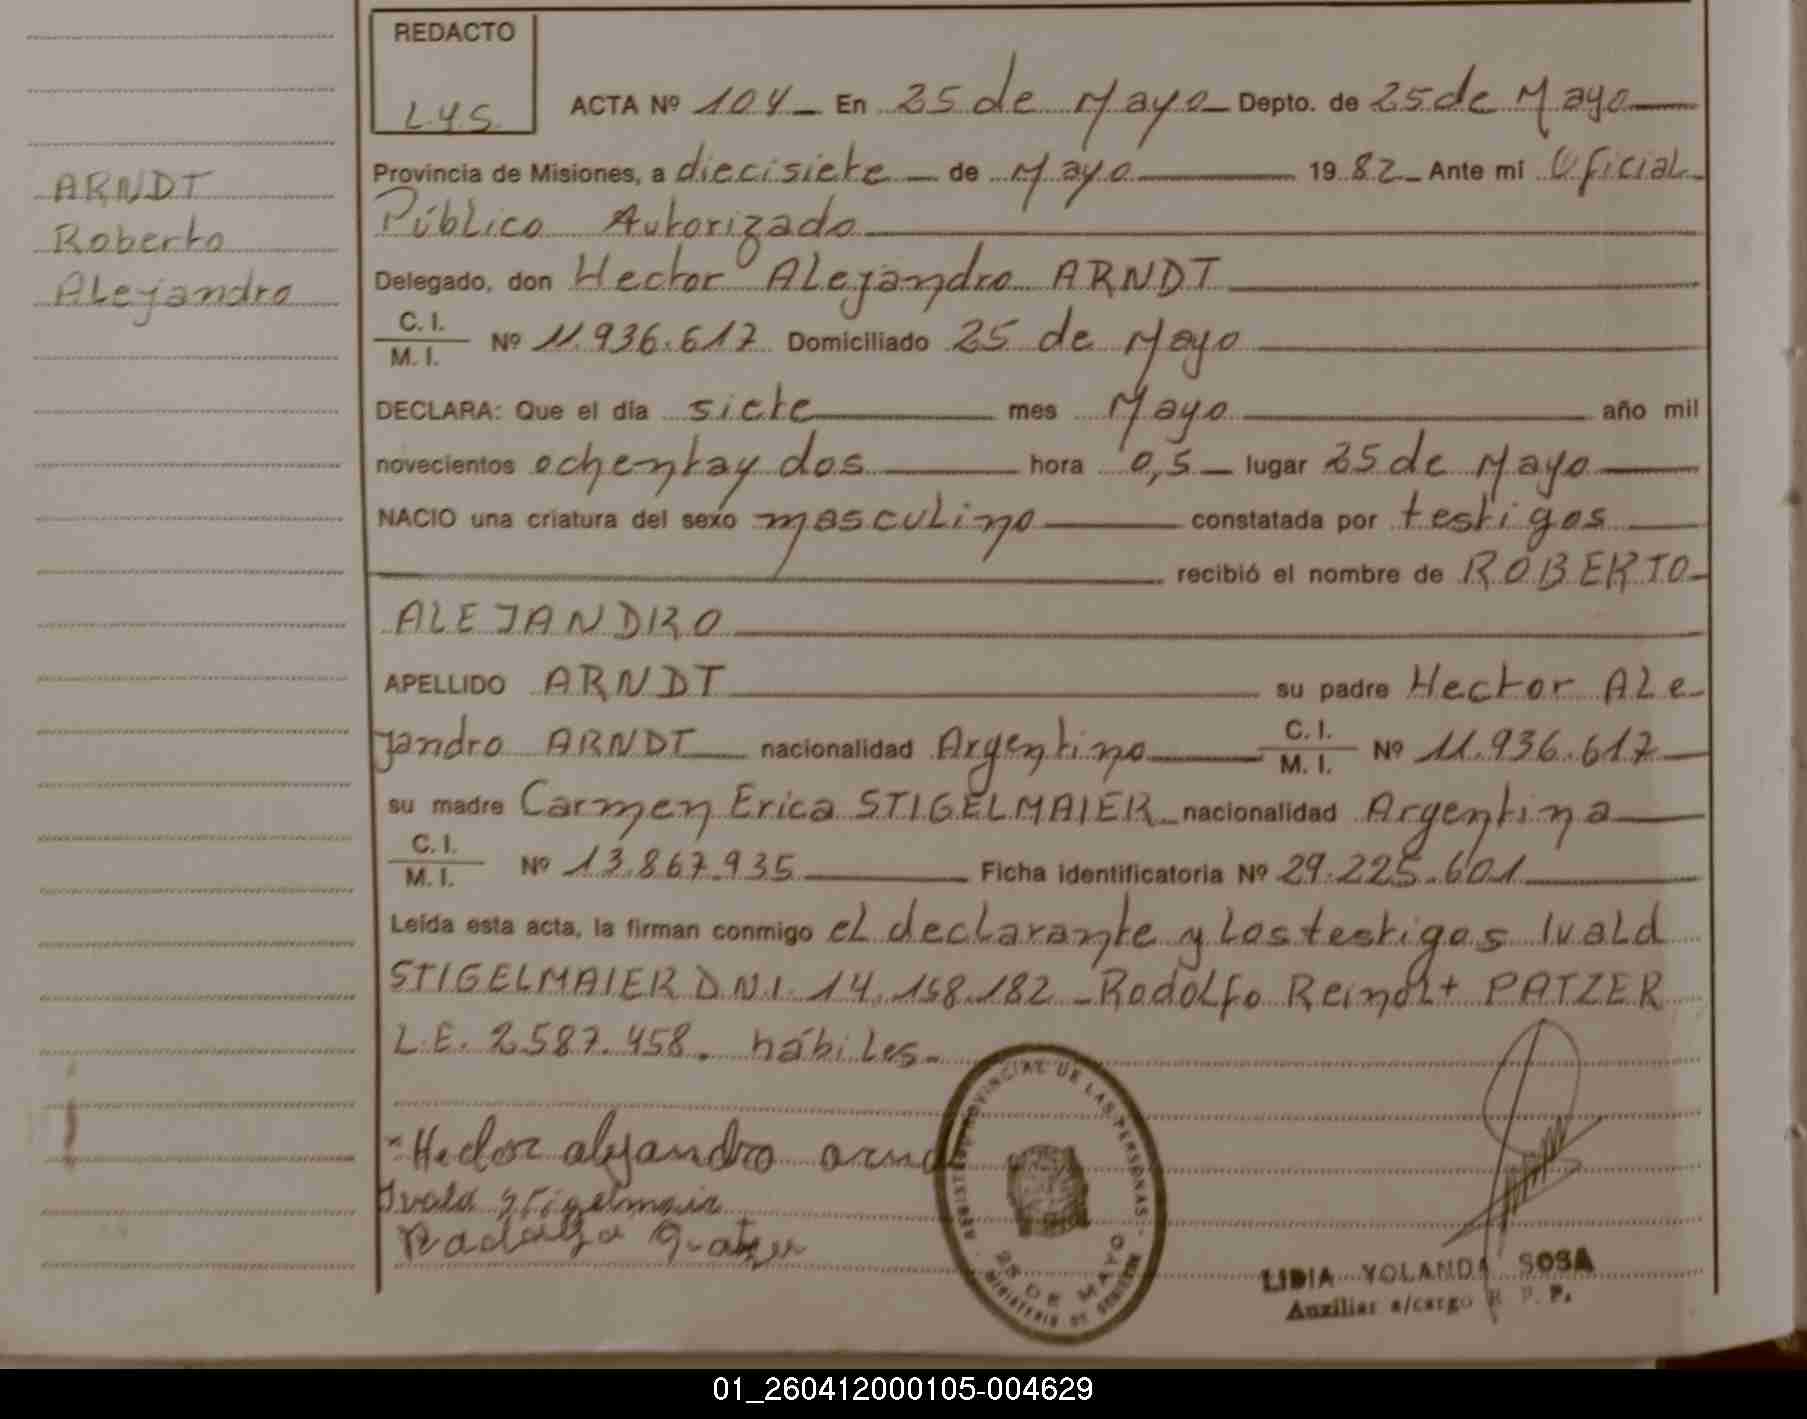 REDACTO
L.Y.S.
ACTA Nº 104 En 25 de Mayo Depto. de 25 de Mayo
Provincia de Misiones, a diecisiete de Mayo 1982 Ante mi Oficial
Público Autorizado
ARNDT
Roberto
Alejandro
Delegado, don Hector Alejandro ARNDT
C. I.
M. I. Nº 11.936.617 Domiciliado 25 de Mayo
DECLARA: Que el día siete mes Mayo año mil
novecientos ochenta y dos hora 0,5 lugar 25 de Mayo
NACIO una criatura del sexo masculino constatada por testigos
recibió el nombre de ROBERTO
ALEJANDRO
APELLIDO ARNDT su padre Hector Ale-
jandro ARNDT nacionalidad Argentino C. I. M. I. Nº 11.936.617
su madre Carmen Erica STIGELMAIER nacionalidad Argentina
C. I.
M. I. Nº 13.867.935 Ficha identificatoria Nº 29.225.601
Leída esta acta, la firman conmigo el declarante y los testigos Ivald
STIGELMAIER D.N.I. 14.158.182 - Rodolfo Reinolt PATZER
L.E. 2587.458. hábiles.
Hector alejandro
Ivald
REGISTRO PROVINCIAL DE LAS PERSONAS
25 DE MAYO
MINISTERIO DE GOBIERNO
LIDIA YOLANDA SOSA
Auxiliar a/cargo R. P. P.
01_260412000105-004629